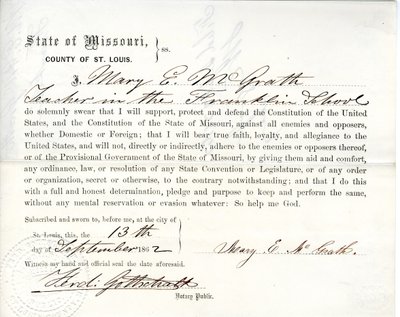 State of Missouri,
COUNTY OF ST. LOUIS. } ss.
I, Mary E. McGrath
Teacher in the Franklin School
do solemnly swear that I will support, protect and defend the Constitution of the United
States, and the Constitution of the State of Missouri, against all enemies and opposers,
whether Domestic or Foreign; that I will bear true faith, loyalty, and allegiance to the
United States, and will not, directly or indirectly, adhere to the enemies or opposers thereof,
or of the Provisional Government of the State of Missouri, by giving them aid and comfort,
any ordinance, law, or resolution of any State Convention or Legislature, or of any order
or organization, secret or otherwise, to the contrary notwithstanding; and that I do this
with a full and honest determination, pledge and purpose to keep and perform the same,
without any mental reservation or evasion whatever: So help me God.
Subscribed and sworn to, before me, at the city of
St. Louis, this, the 13th
day of September 1862
Mary E. McGrath.
Witness my hand and official seal the date aforesaid.
Ferdi: Gottschalk
Notary Public.